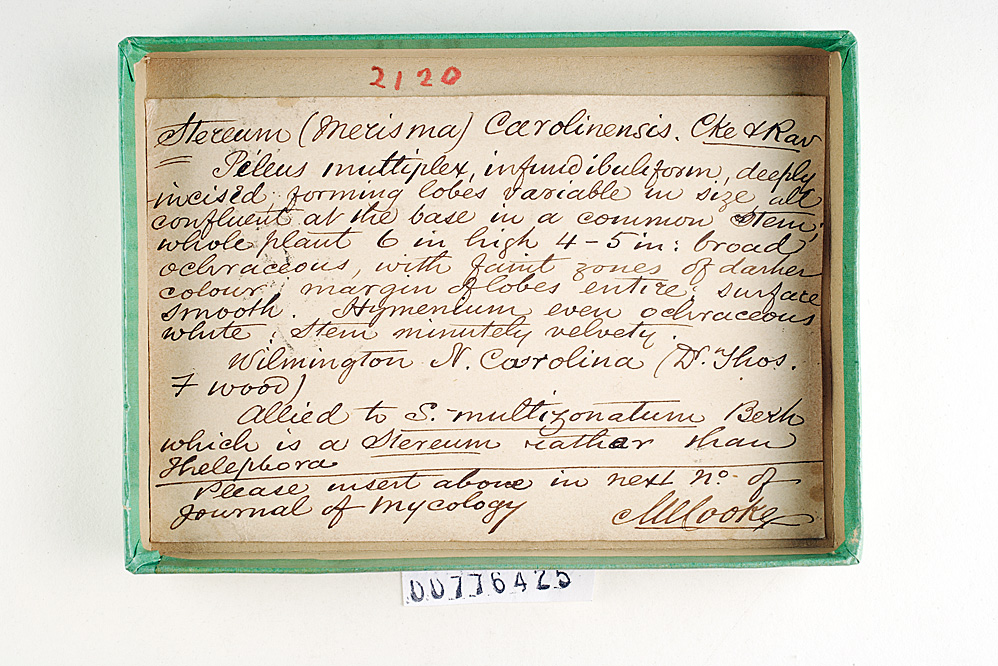 2120
Stereum (Merisma) Carolinensis. Cke & Rav
Pileus multiplex, infundibuliform, deeply
incised, forming lobes variable in size all
confluent at the base in a common stem;
whole plant 6 in high 4-5 in: broad,
ochraceous, with faint zones of darker
colour; margin of lobes entire; surface
smooth. Hymenium even ochraceous
white. Stem minutely velvety.
Wilmington N. Carolina (Dr. Thos.
F Wood)
Allied to S. multizonatum Berk
which is a Stereum rather than
Thelephora
Please insert above in next No. of
Journal of Mycology
MCCooke
00776425